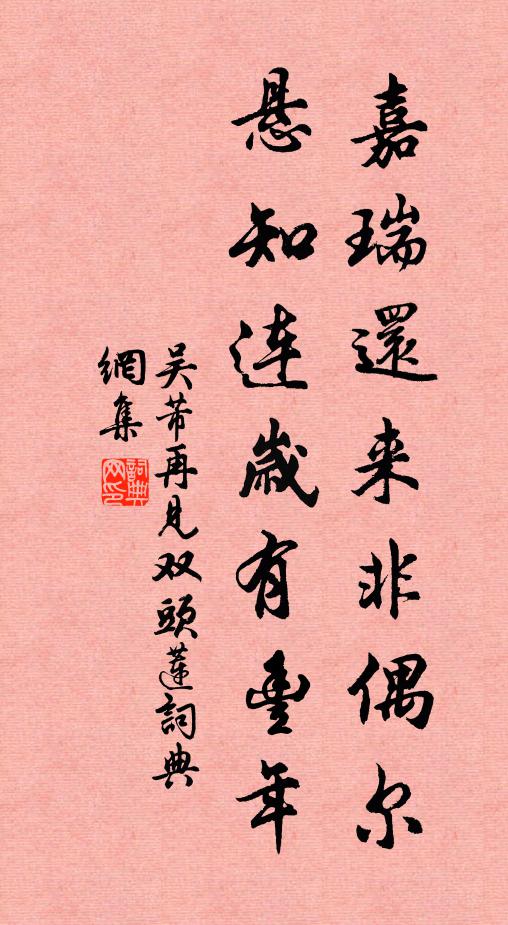 嘉瑞還来非偶尔
悬知连歲有豊年
吴芾再見双頭蓮詞典
網集
詞典
网印